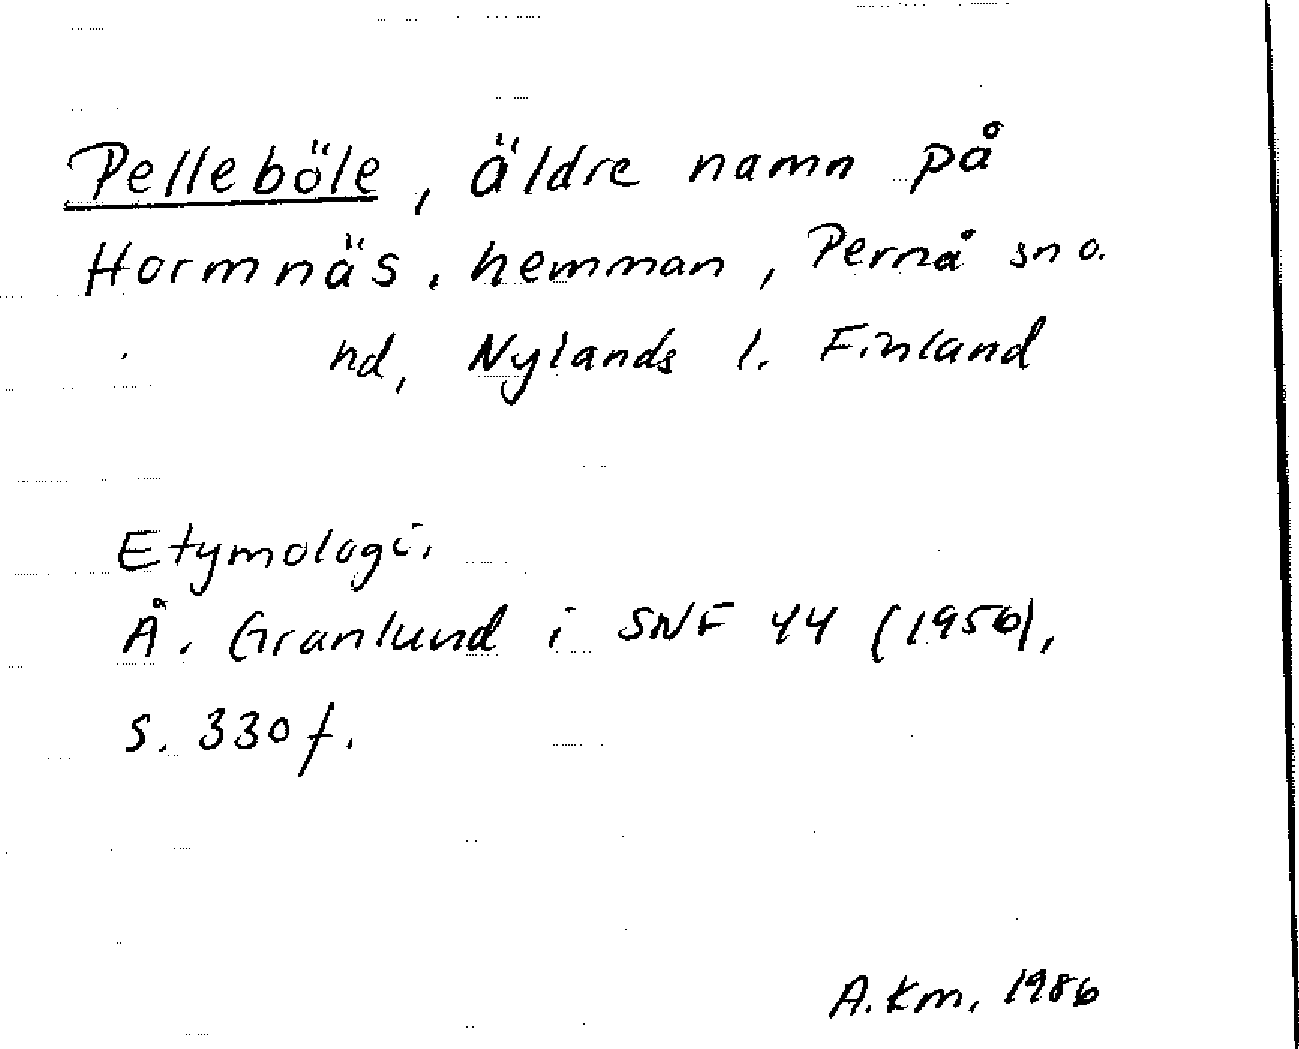 Pelleböle, äldre namn på
Hormnäs, hemman, Pernå sn o.
hd, Nylands l. Finland
Etymologi.
Å. Granlund i SNF 44 (1956),
s. 330 f.
A. Km. 1986